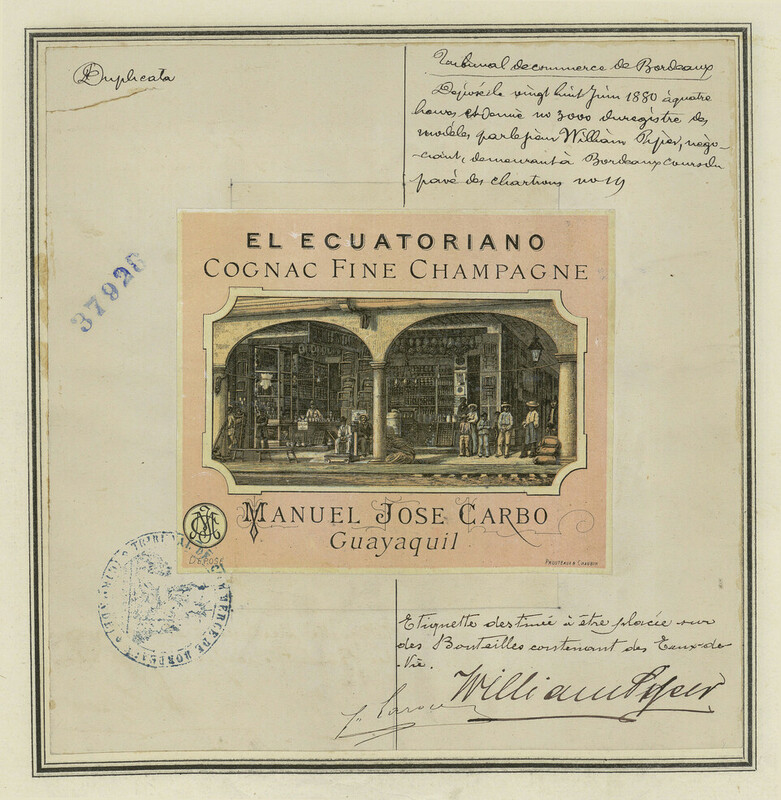 Duplicata
Tribunal de commerce de Bordeaux
Déposé le vingt huit Juin 1880 à quatre
heures et demie no 3000 du registre des
modèles par le sieur William Pipèr, négo-
-ciant, demeurant à Bordeaux cours du
pavé des chartrons no 19
37928
EL ECUATORIANO
COGNAC FINE CHAMPAGNE
MANUEL JOSE CARBO
Guayaquil
DÉPOSÉ
TRIBUNAL DE COMMERCE DE BORDEAUX
Etiquette destinée à être placée sur
des Bouteilles contenant des Eaux-de-
-Vie.
William Pipèr